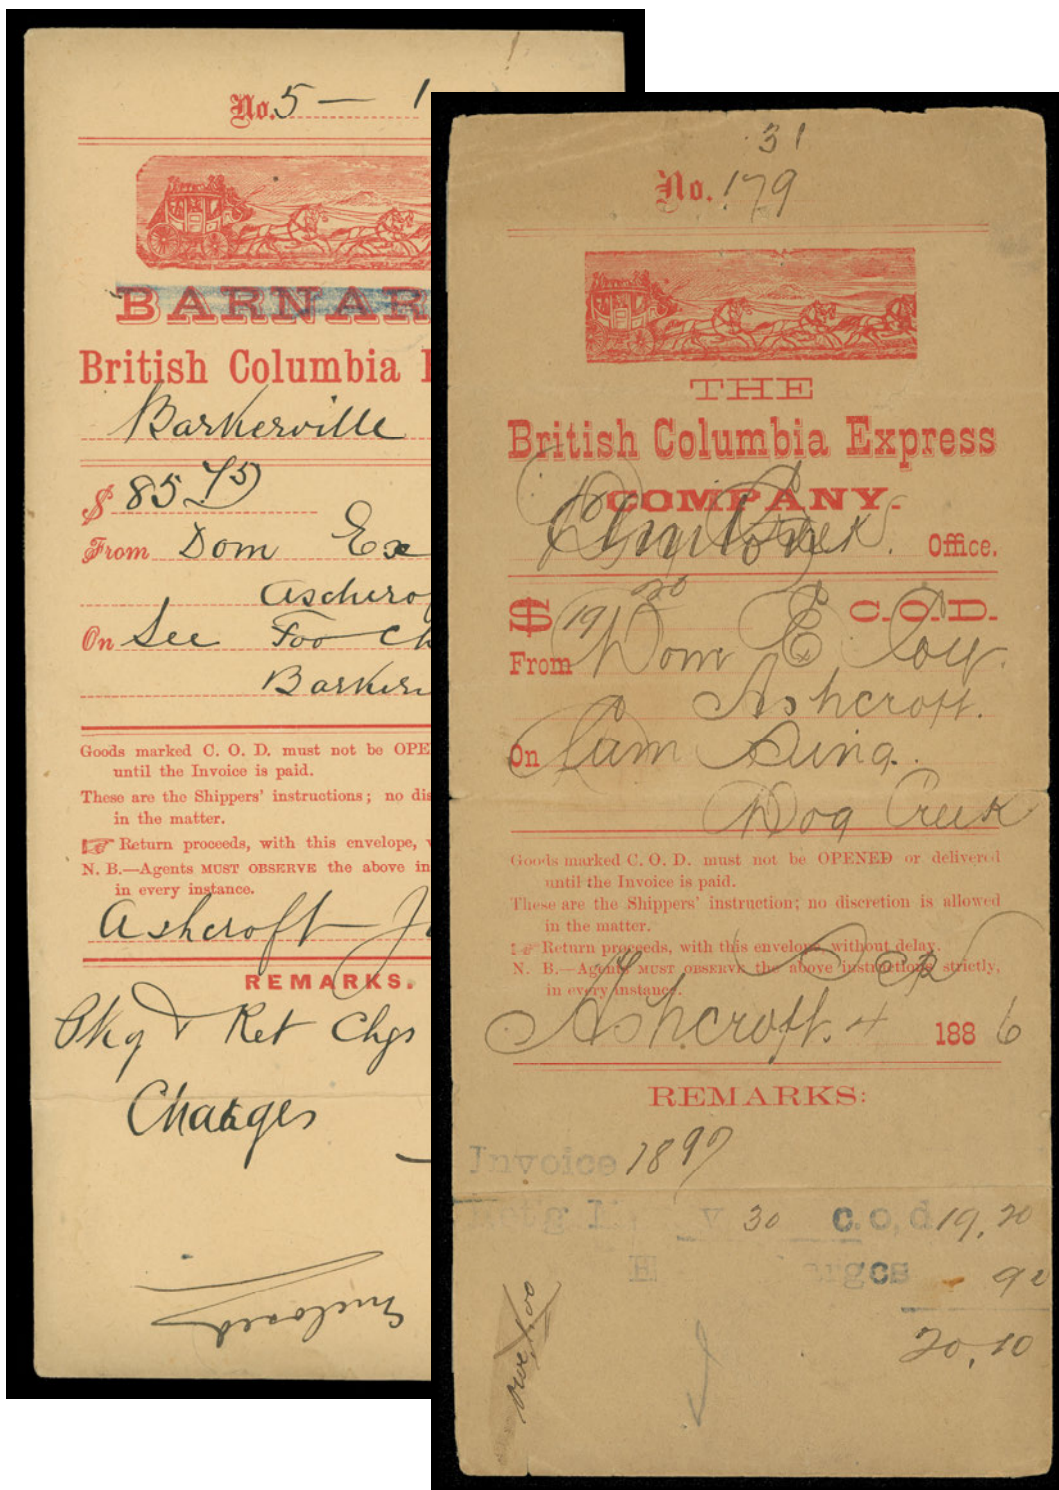 No. 5 — 1
BARNAR
British Columbia
Barkerville
$ 85 75
From Dom Ex
Aschero
On See Foo Ch
Barkerv
Goods marked C. O. D. must not be OPE
until the Invoice is paid.
These are the Shippers' instructions; no dis
in the matter.
Return proceeds, with this envelope,
N. B.—Agents MUST OBSERVE the above in
in every instance.
Ashcroft
REMARKS.
Pkg & Ret Chgs
Charges
Enclosed
31
No. 179
THE
British Columbia Express
COMPANY.
Clinton Office.
$ 19 20 C. O. D.
From Dom E Coy.
Ashcroft.
On Sam Sing.
Dog Creek
Goods marked C. O. D. must not be OPENED or delivered
until the Invoice is paid.
These are the Shippers' instruction; no discretion is allowed
in the matter.
Return proceeds, with this envelope, without delay.
N. B.—Agents MUST OBSERVE the above instructions strictly,
in every instance.
Sep
Ashcroft. 4 1886
REMARKS:
Invoice 1897
30 c. o. d 19.20
E arges 90
20.10